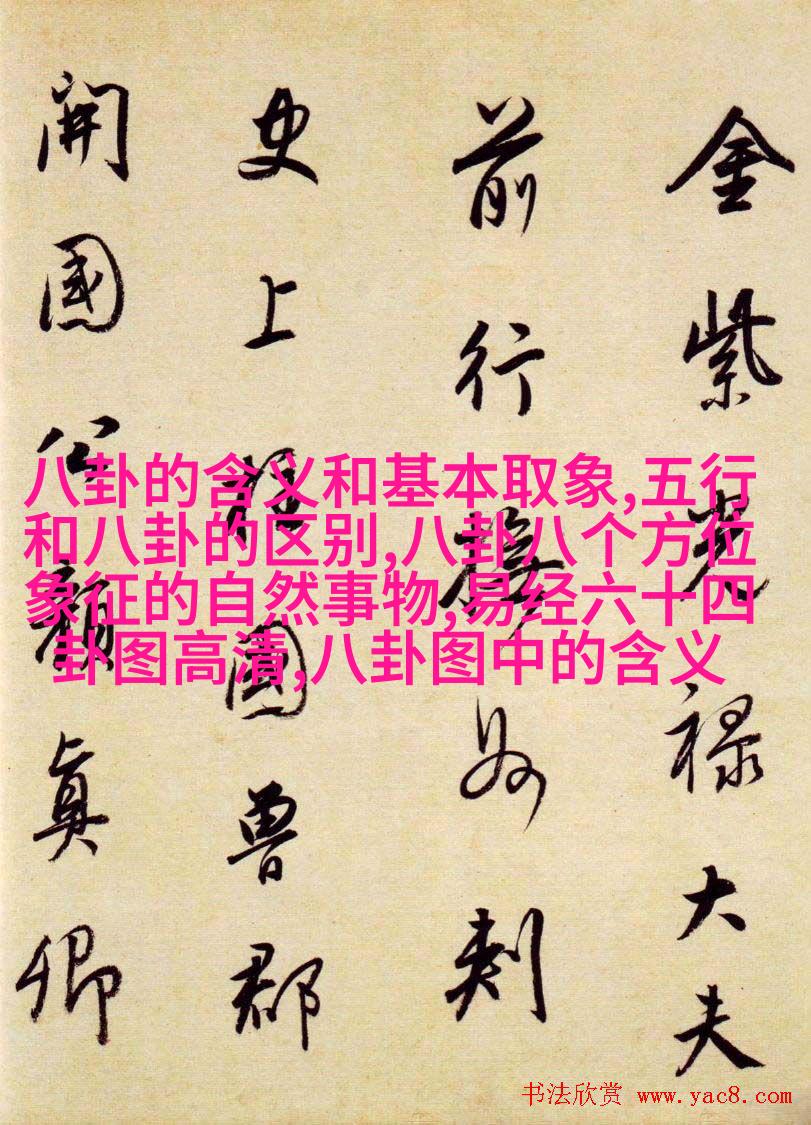 金紫光禄大夫
前行撫州刺
史上柱國魯郡
開國公顏真卿
八卦的含义和基本取象,五行
和八卦的区别,八卦八个方位
象征的自然事物,易经六十四
卦图高清,八卦图中的含义
书法欣赏 www.yac8.com